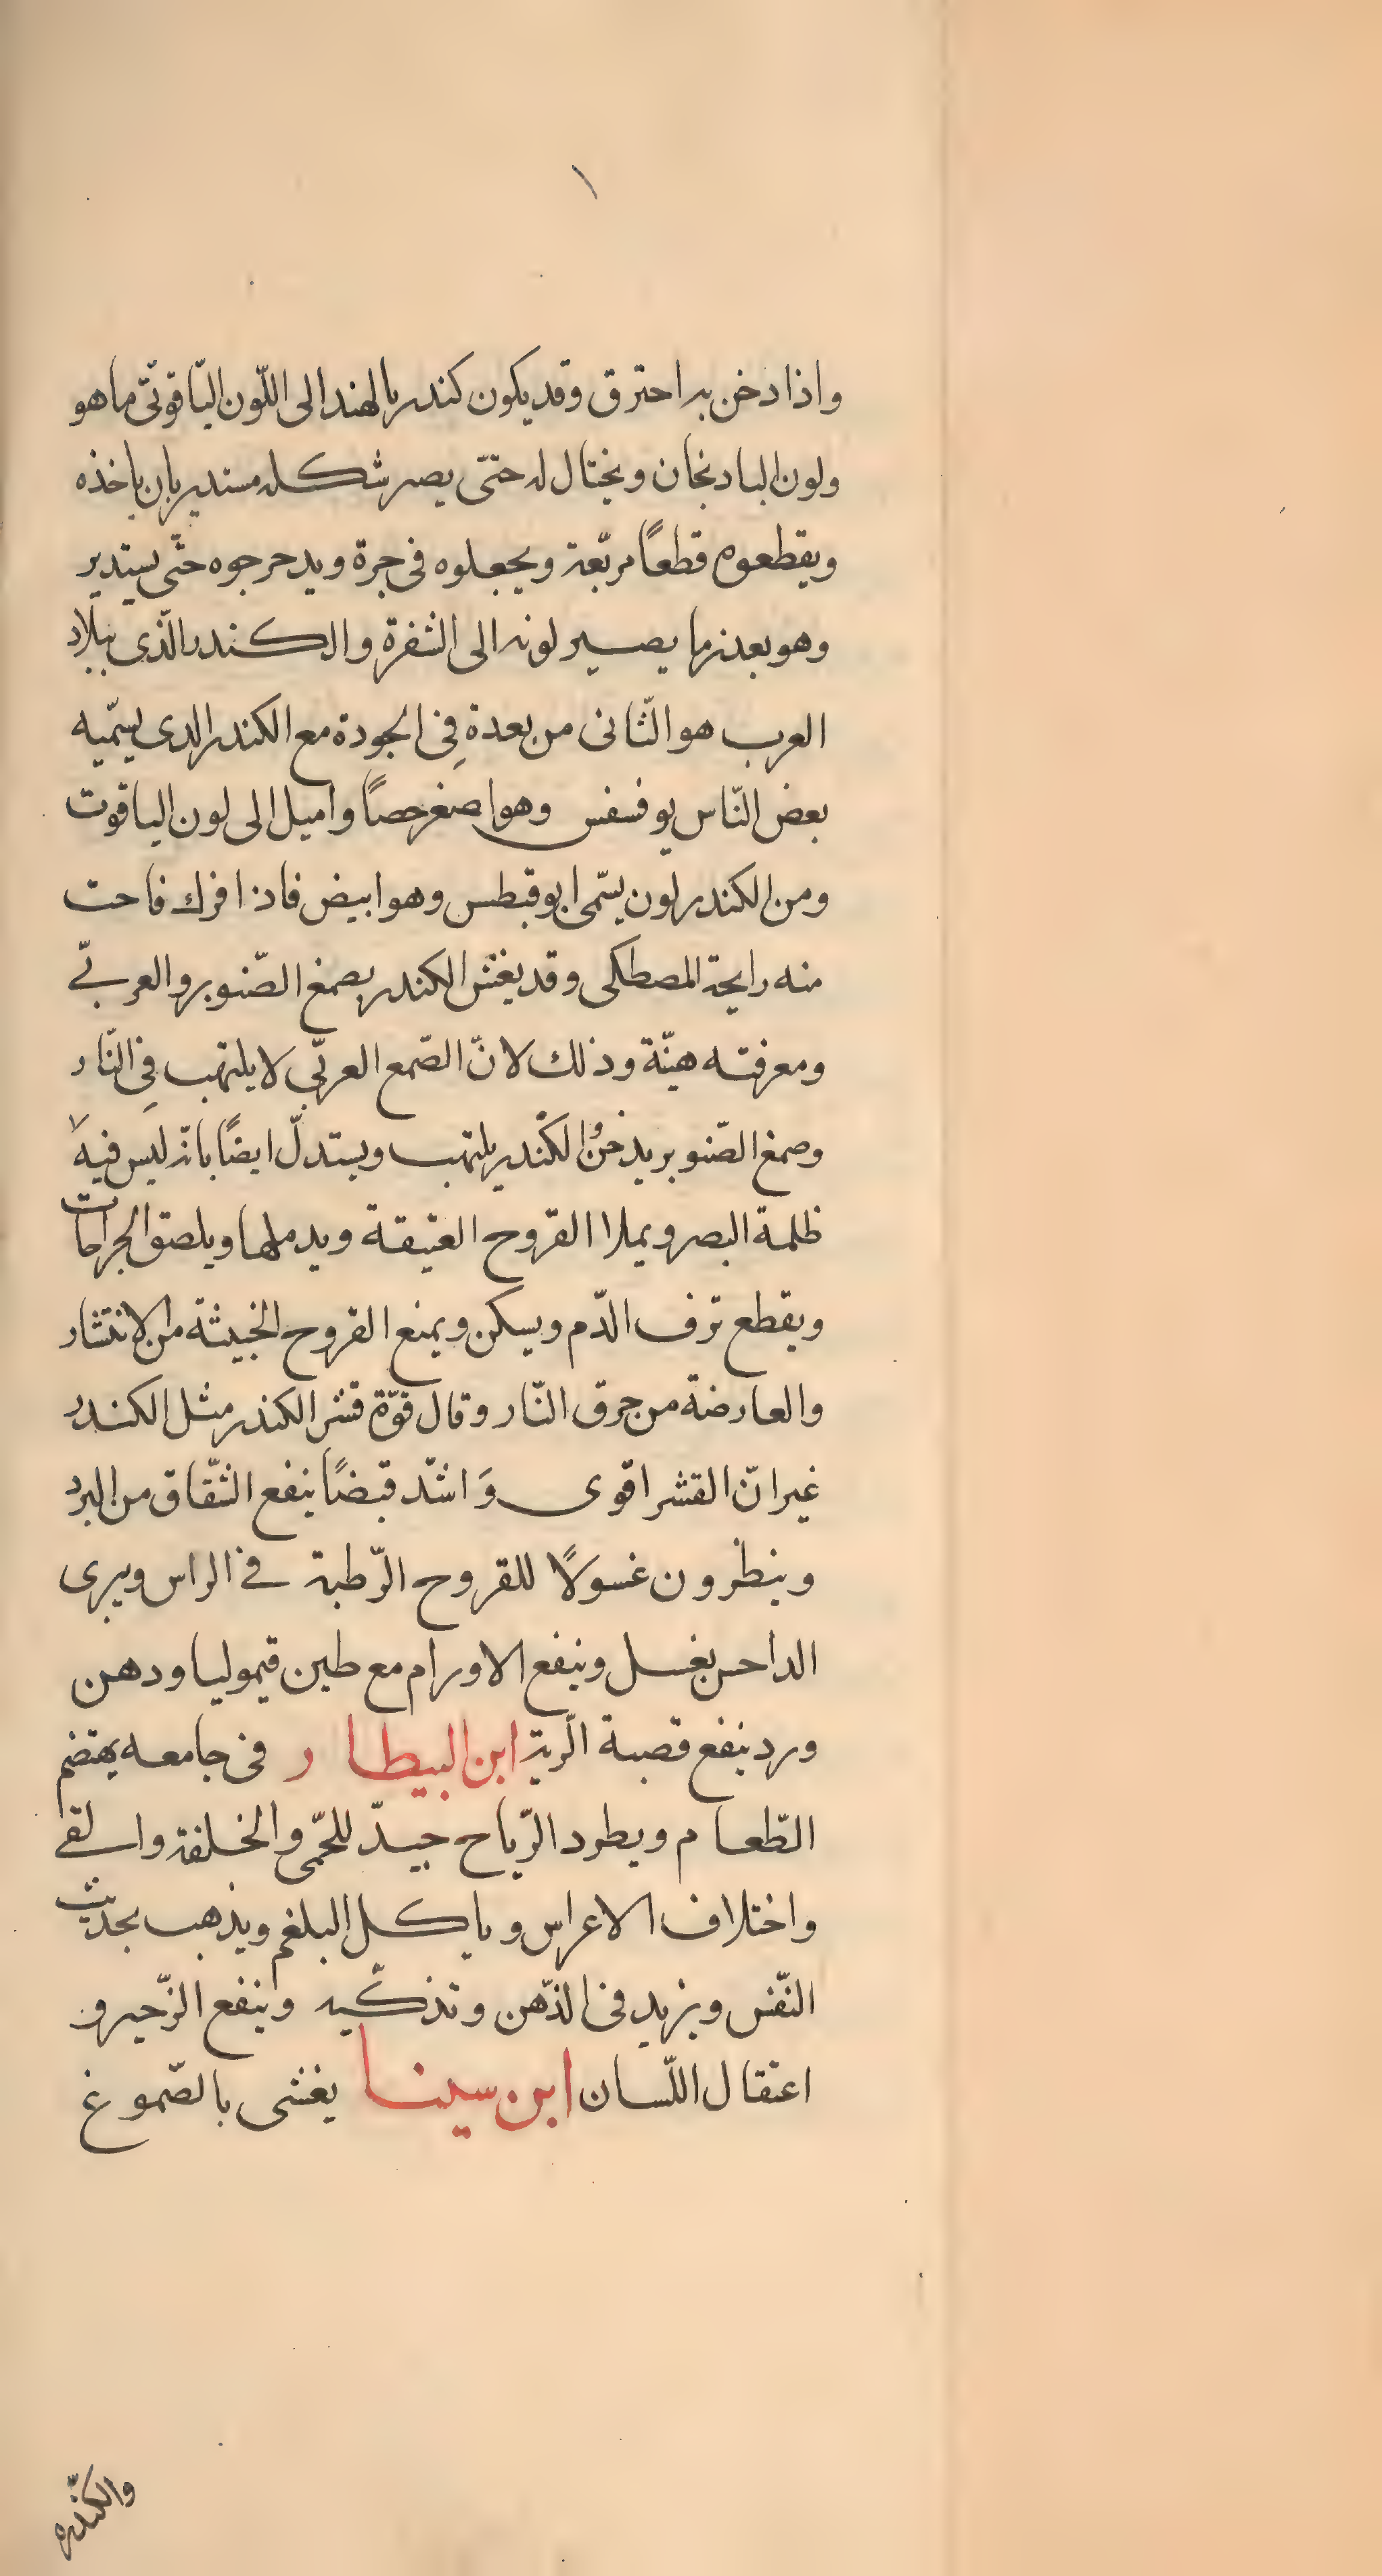 واذا دخن به احترق وقد يكون كندر بالهند الى اللّون اليّاقوتّى ما هو
ولون البادنجان ويختال له حتّى يصر شكله مستدير بان ياخذه
ويقطعوه قطعاً مربّعة ويجعلوه فى جرة ويدحرجوه حتّى يستدير
وهو بعد زما يصير لونه الى الشفرة والكندر الّذى ببلاد
العرب هو الثّانى من بعدة فِى الجودة مع الكندر الدى يسمّيه
بعض النّاس يوفسفس وهو اصغر حصاً واميل الى لون الياقوت
ومن الكندر لون يسّمى ابوقبطس وهو ابيض فاذا فرك فاحت
منه رايحة المصطكى وقد يغش الكندر بصمغ الصّنوبر والعربّي
ومعرفته هيّنة وذلك لانّ الصّمع العربّي لا يلتهب فِى النّار
وصمغ الصّنوبر يدخنُ والكُندر يلتهب ويستدلّ ايضاً بانّه ليس فيه
ظلمة البصر ويملا القروح العتيقة ويدملها ويلصق الجراحات
ويقطع ترف الدّم ويسكن ويمنع القروح الخبيثة من الانتثار
والعارضة من حرق النّار وقال قوّة قشر الكندر مثل الكندر
غير انّ القشر اقوى وَاشدّ قبضاً ينفع الشّقاق من البرد
وبنطرون غسولاً للقروح الرّطبة في الراس ويبرى
الداحس بغسل وينفع الاورام مع طين قيموليا ودهن
ورد ينفع قصبة الرّية ابن البيطار فى جامعه يهتضم
الطّعام ويطرد الرّياح جيدّ للحّمى والخلفة والقي
واختلاف الاعراس وياكل البلغم ويذهب بحديث
النّفس ويزيد فى الذّهن وتذكّيه وينفع الزّحير و
اعتقال اللّسان ابن سينا يغشى بالصّموغ
والكندر